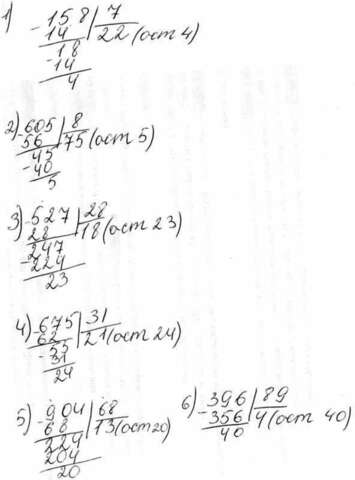 1) -158 | 7
14 22 (ост 4)
18
-14
4
2) -605 | 8
56 75 (ост 5)
45
-40
5
3) -527 | 28
28 18 (ост 23)
247
-224
23
4) -675 | 31
62 21 (ост 24)
-55
31
24
5) -904 | 68
68 13 (ост 20)
224
204
20
6) -396 | 89
356 4 (ост 40)
40